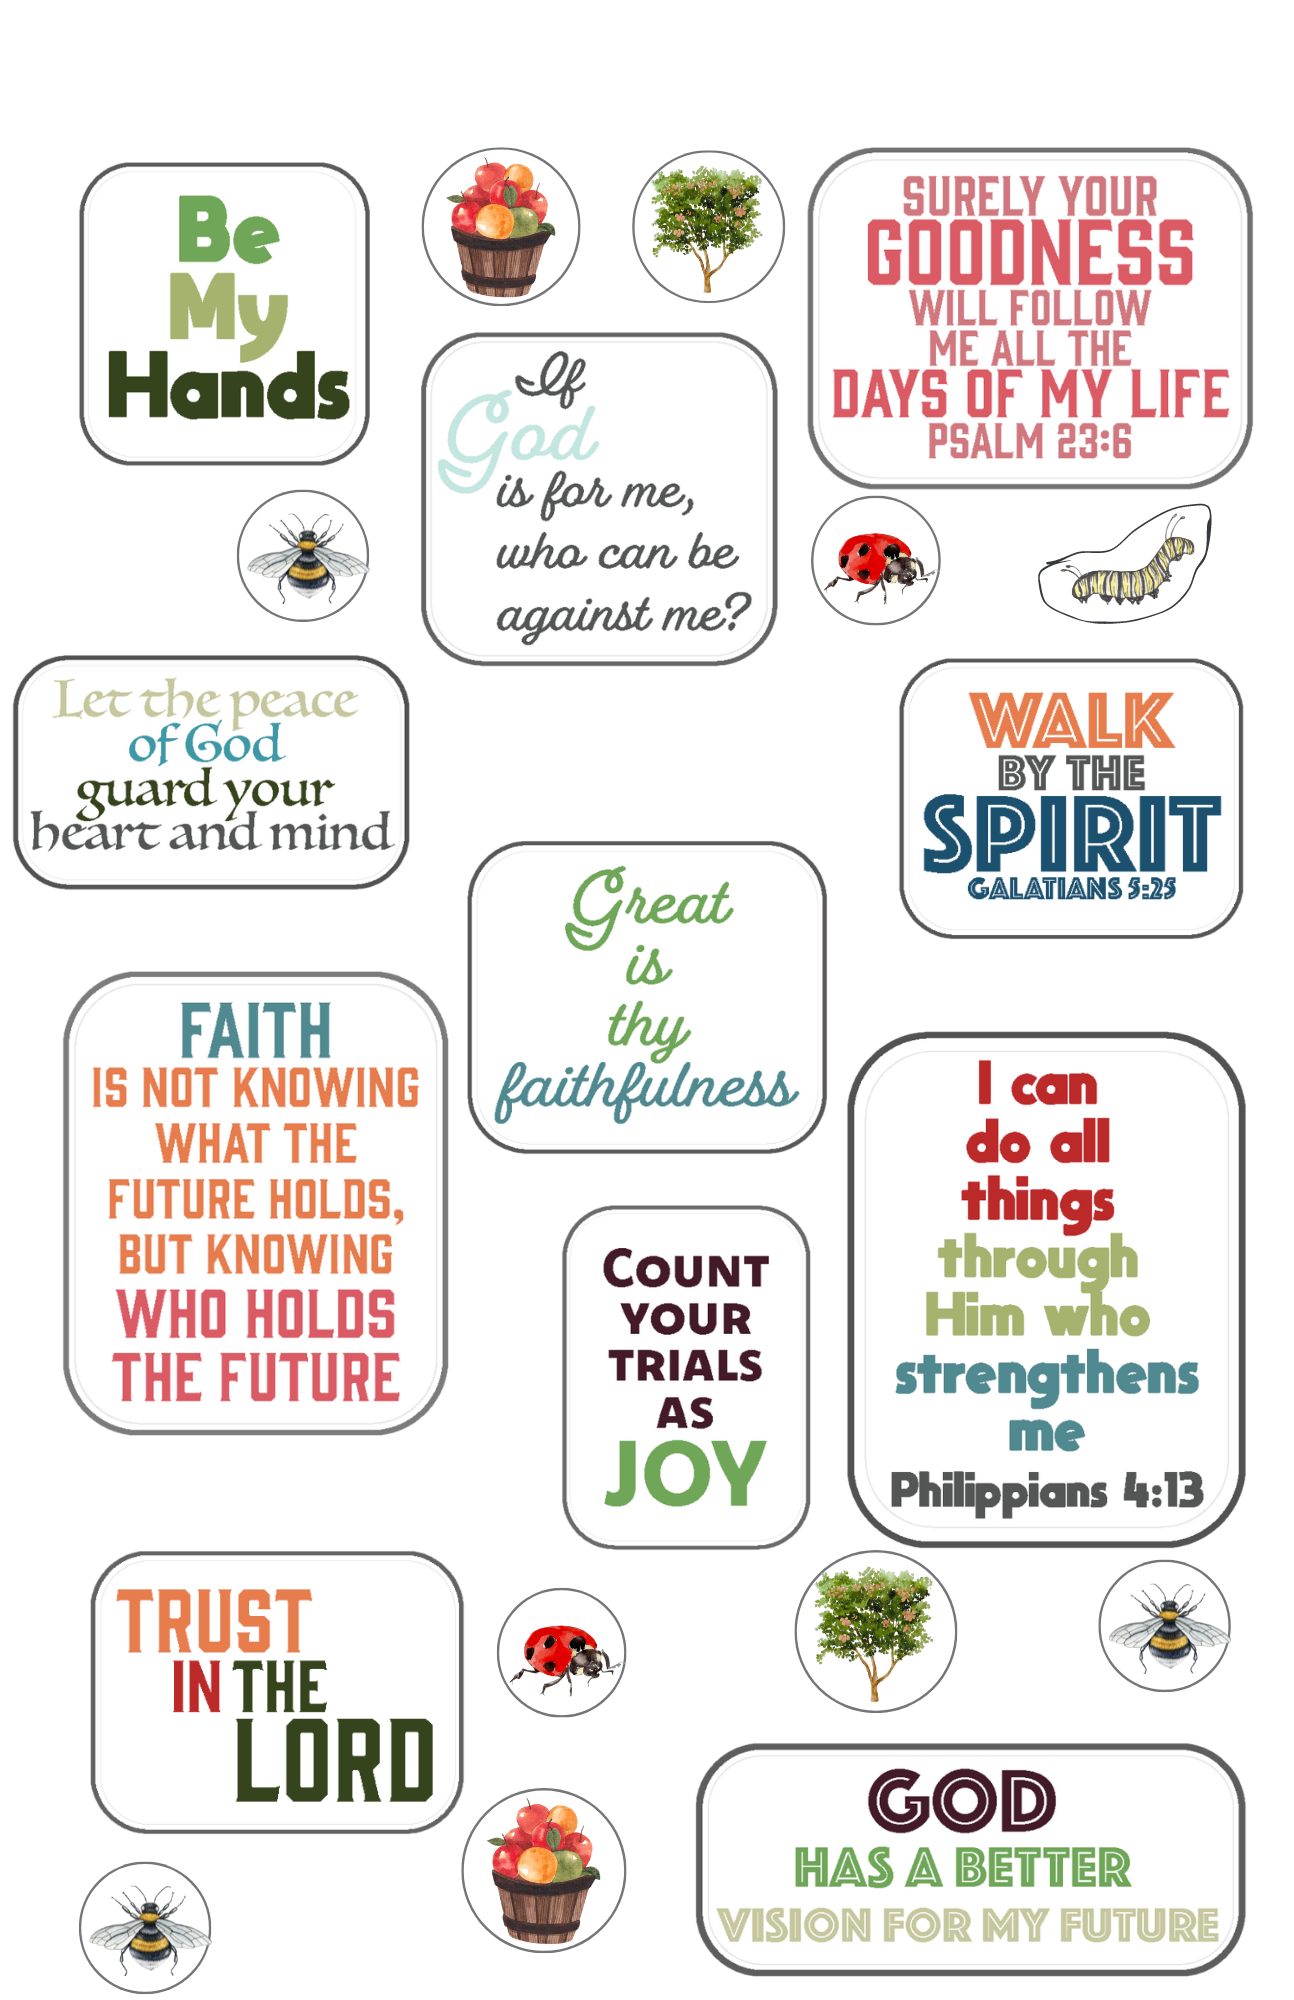 Be
My
Hands
SURELY YOUR
GOODNESS
WILL FOLLOW
ME ALL THE
DAYS OF MY LIFE
PSALM 23:6
If
God
is for me,
who can be
against me?
Let the peace
of God
guard your
heart and mind
WALK
BY THE
SPIRIT
GALATIANS 5:25
Great
is
thy
faithfulness
FAITH
IS NOT KNOWING
WHAT THE
FUTURE HOLDS,
BUT KNOWING
WHO HOLDS
THE FUTURE
I can
do all
things
through
Him who
strengthens
me
Philippians 4:13
COUNT
YOUR
TRIALS
AS
JOY
TRUST
IN THE
LORD
GOD
HAS A BETTER
VISION FOR MY FUTURE